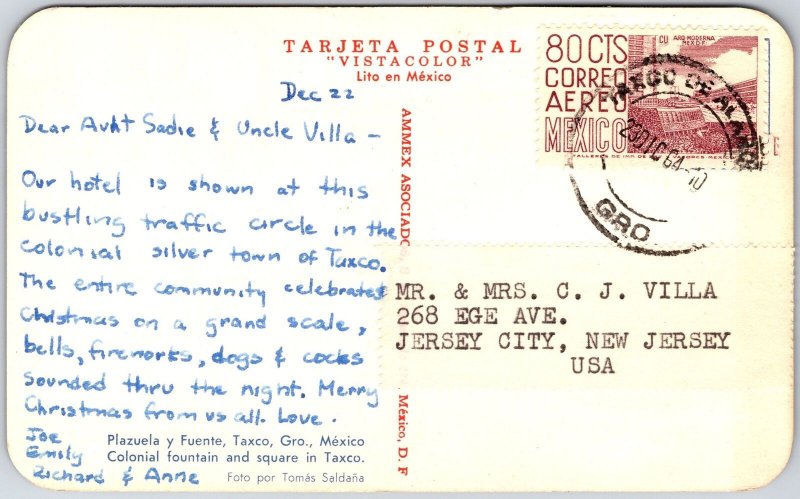 TARJETA POSTAL
"VISTACOLOR"
Lito en México
Dec 22
Dear Aunt Sadie & Uncle Villa -
Our hotel is shown at this
bustling traffic circle in the
colonial silver town of Taxco.
The entire community celebrates
Christmas on a grand scale,
bells, fireworks, dogs & cocks
sounded thru the night. Merry
Christmas from us all. Love.
Joe
Emily
Richard & Anne
Plazuela y Fuente, Taxco, Gro., México
Colonial fountain and square in Taxco.
Foto por Tomás Saldaña
AMMEX ASOCIADOS
México, D. F
80 CTS
CORREO
AEREO
MEXICO
CU ARQ MODERNA
MEX D.F.
TAXCO DE ALARCON
23 DIC 64-10
GRO.
MR. & MRS. C. J. VILLA
268 EGE AVE.
JERSEY CITY, NEW JERSEY
USA